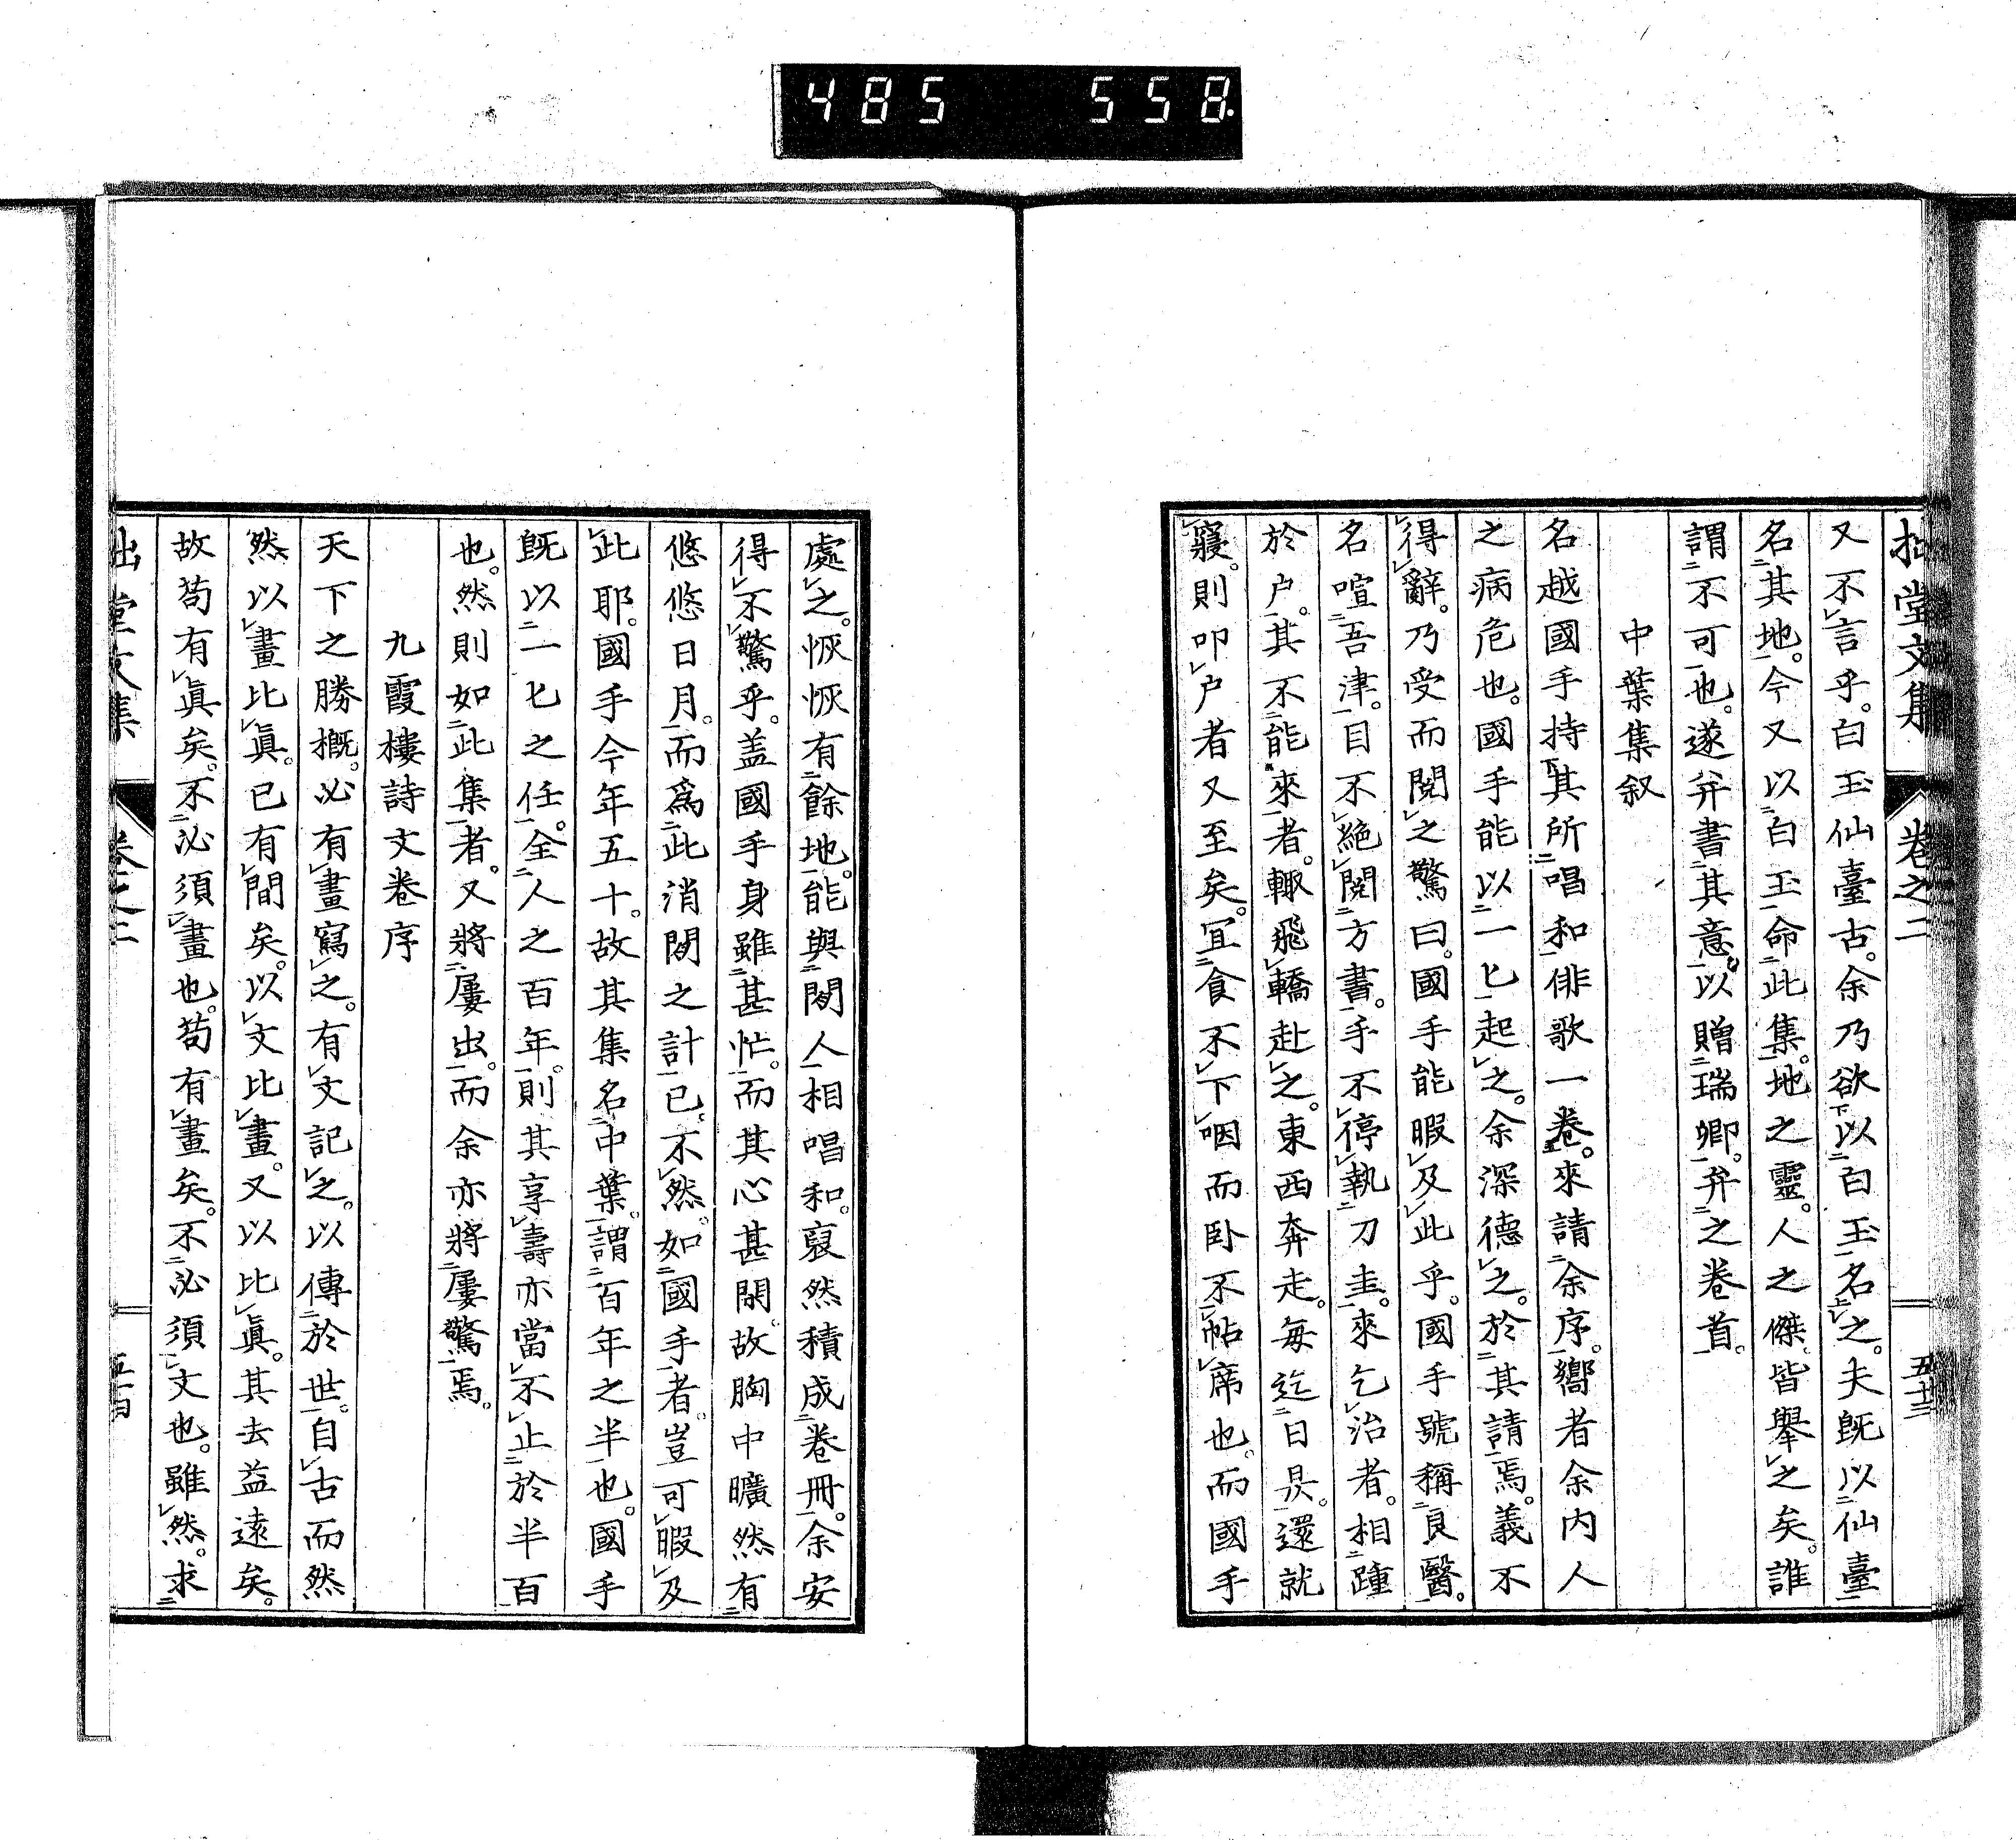 485 558
拙堂文集 卷之二 五十三
又不言乎。白玉仙臺古。余乃欲以白玉名之。夫既以仙臺
名其地。今又以白玉命此集。地之靈。人之傑。皆擧之矣。誰
謂不可也。遂弁書其意。以贈瑞卿。弁之卷首。
中葉集叙
名越國手持其所唱和俳歌一卷。來請余序。嚮者余内人
之病危也。國手能以一匕起之。余深德之。於其請焉。義不
得辭。乃受而閱之驚曰。國手能暇及此乎。國手號稱良醫。
名喧吾津。目不絶閱方書。手不停執刀圭。來乞治者。相踵
於户。其不能來者。輙飛轎赴之。東西奔走。每迄日昃。還就
寢。則叩户者又至矣。宜食不下咽而卧不帖席也。而國手
處之。恢恢有餘地。能與閒人相唱和。裒然積成卷冊。余安
得不驚乎。盖國手身雖甚忙。而其心甚閒。故胸中曠然有
悠悠日月。而爲此消閒之計已。不然。如國手者。豈可暇及
此耶。國手今年五十。故其集名中葉。謂百年之半也。國手
既以一匕之任。全人之百年。則其享壽亦當不止於半百
也。然則如此集者。又將屢出。而余亦將屢驚焉。
九霞樓詩文卷序
天下之勝概。必有畫寫之。有文記之。以傳於世。自古而然
然以畫比眞。已有間矣。以文比畫。又以比眞。其去益遠矣。
故苟有眞矣。不必須畫也。苟有畫矣。不必須文也。雖然。求
拙堂文集 卷之二